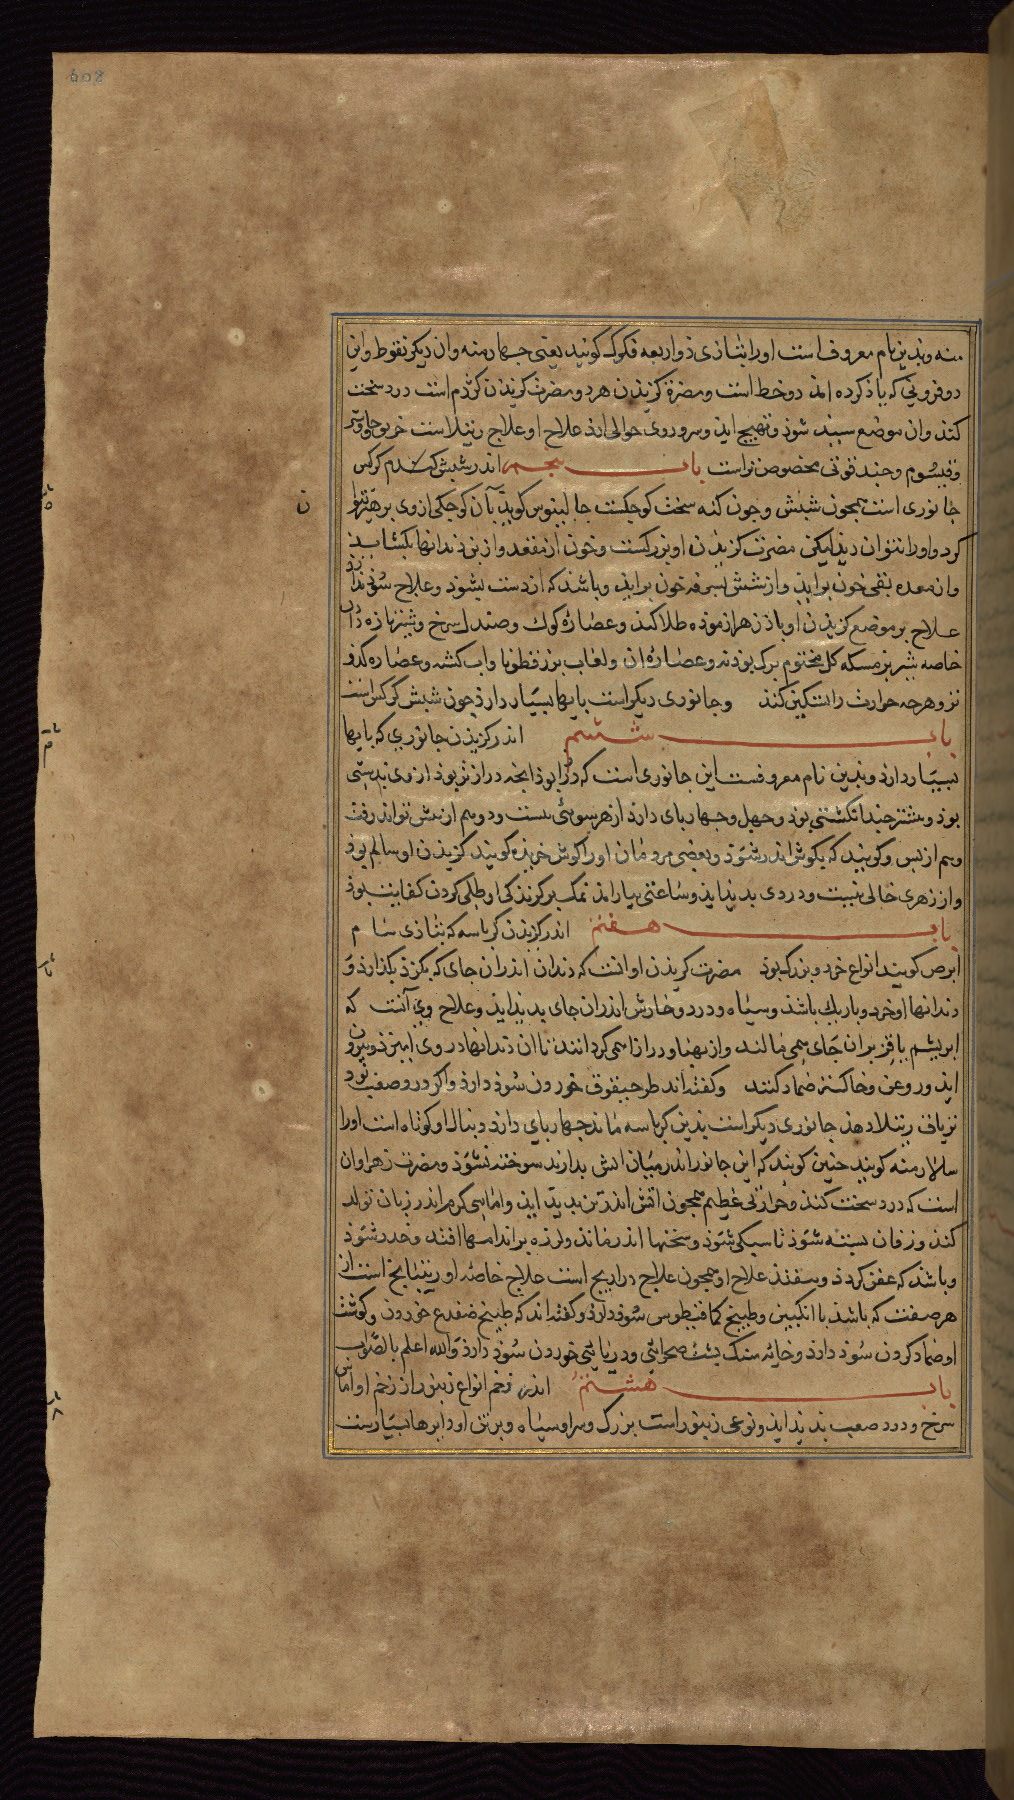 608
منه وبدین نام معروف است اورا بتازی ذو اربعه فکوک کویند یعنی چهار منه وان دیکر نقوط واین
دو فرونی که یاذ کرده اند دو خط است ومضرة کزیدن هر دو مضرت کزیدن کژدم است درد سخت
کند وان موضع سپید شوذ وتهیج اید وسر وروی حوالی ارد علاج او علاج رتیلا است خربو جاوشیر
وقیسوم وجند قوتی مخصوص تراست باب پنجم اندر شپش که کندم کرکس
جانوری است همجون شپش وجون کنه سخت کوجکست جالینوس کویذ آن کوجکی ازوی برهیز نتوان
کرد واورا نتوان دید لیکن مضرت کزیدن او بزرکست وخون از مقعد واز بن دندانها بکشاید
وازمعده بقی خون براید وازشش بسرفه خون براید وباشد که ازدست بشوذ وعلاج سوذ ندارد
علاج بر موضع کزیدن او باذ زهر ازموده طلا کند وعصاره کوک وصندل سرخ وشیر تازه دادن
خاصه شیر بز مسکه کل مختوم برک بوذنه وعصاره ان ولعاب بزرقطونا واب کشنه وعصاره کدو
تر وهرجه حرارت را تسکین کند وجانوری دیکر است پایها بسیار دارذ جون شپش کرکس است
باب ششم اندر کزیدن جانوری که پایها
بسیار دارد وبدین نام معروفست این جانوری است که دراز بوذ انجه درازتر بوذ ازوی بدستی
بوذ وبیشتر چند انکشتی بوذ وچهل وچهار پای دارد ازهر سوئی بیست ودو هم ازپیش تواند رفت
وهم ازپس وکویند که بکوش اندر شوذ وبعضی مردمان اورا کوش خزنده کویند کزیدن او سالم بوذ
واز زهری خالی نیست ودردی بدید اید وساعتی بیارامد نمک برکزندکی او طلی کردن کفایت بوذ
باب هفتم اندر کزیدن کرباسه که بتازی سام
ابرص کویند انواع خرد وبزرک بوذ مضرت کزیدن او انست که دندان اندران جای که بکزد بکذارد و
دندانها او خرد وباریک باشذ وسیاه ودرد وخارش اندران جای بدید اید وعلاج وی آنست که
ابریشم یا قز بران جای همی مالند وازپهنا ودرازا همی کردانند تا ان دندانها در وی اویزد وبیرون
اید وروغن وخاکستر ضماد کنند وکفته اند طرحشقوق خوردن سوذ دارد واکر درد وصعب بود
تریاق رتیلا دهند جانوری دیکر است بدین کرباسه ماند چهار پای دارد ودنبال او کوتاه است اورا
سالارمنه کویند چنین کویند که این جانور اندر میان اتش بدارند سوخته نشوذ ومضرت زهر اوان
است که درد سخت کند وحرارتی عظیم همجون اتش اندر تن بدید اید واماسی کرم اندر زبان تولد
کند وزفان بسته شوذ تاسیکی شوذ وسخنها اندر ماند ولرزه براندامها افتد وخدر شوذ
وباشد که عفن کردد وبیفتد علاج او همجون علاج دراریح است علاج خاصه او ریتیانج است از
هر صفت که باشذ با انکبین وطبیخ کمافیطوس سوذ دارد وکفته اند که طبیخ ضفدع خوردن وکوشت
او ضماد کردن سوذ دارد وخایه سنک پشت صحرائی ودریائی خوردن سوذ دارد والله اعلم بالصواب
باب هشتم اندر زخم انواع زنبور از زخم او اماس
سرخ ودرد صعب بدید اید ونوعی زنبور است بزرک وسر او سیاه وبرتن او دایرها بسیارست